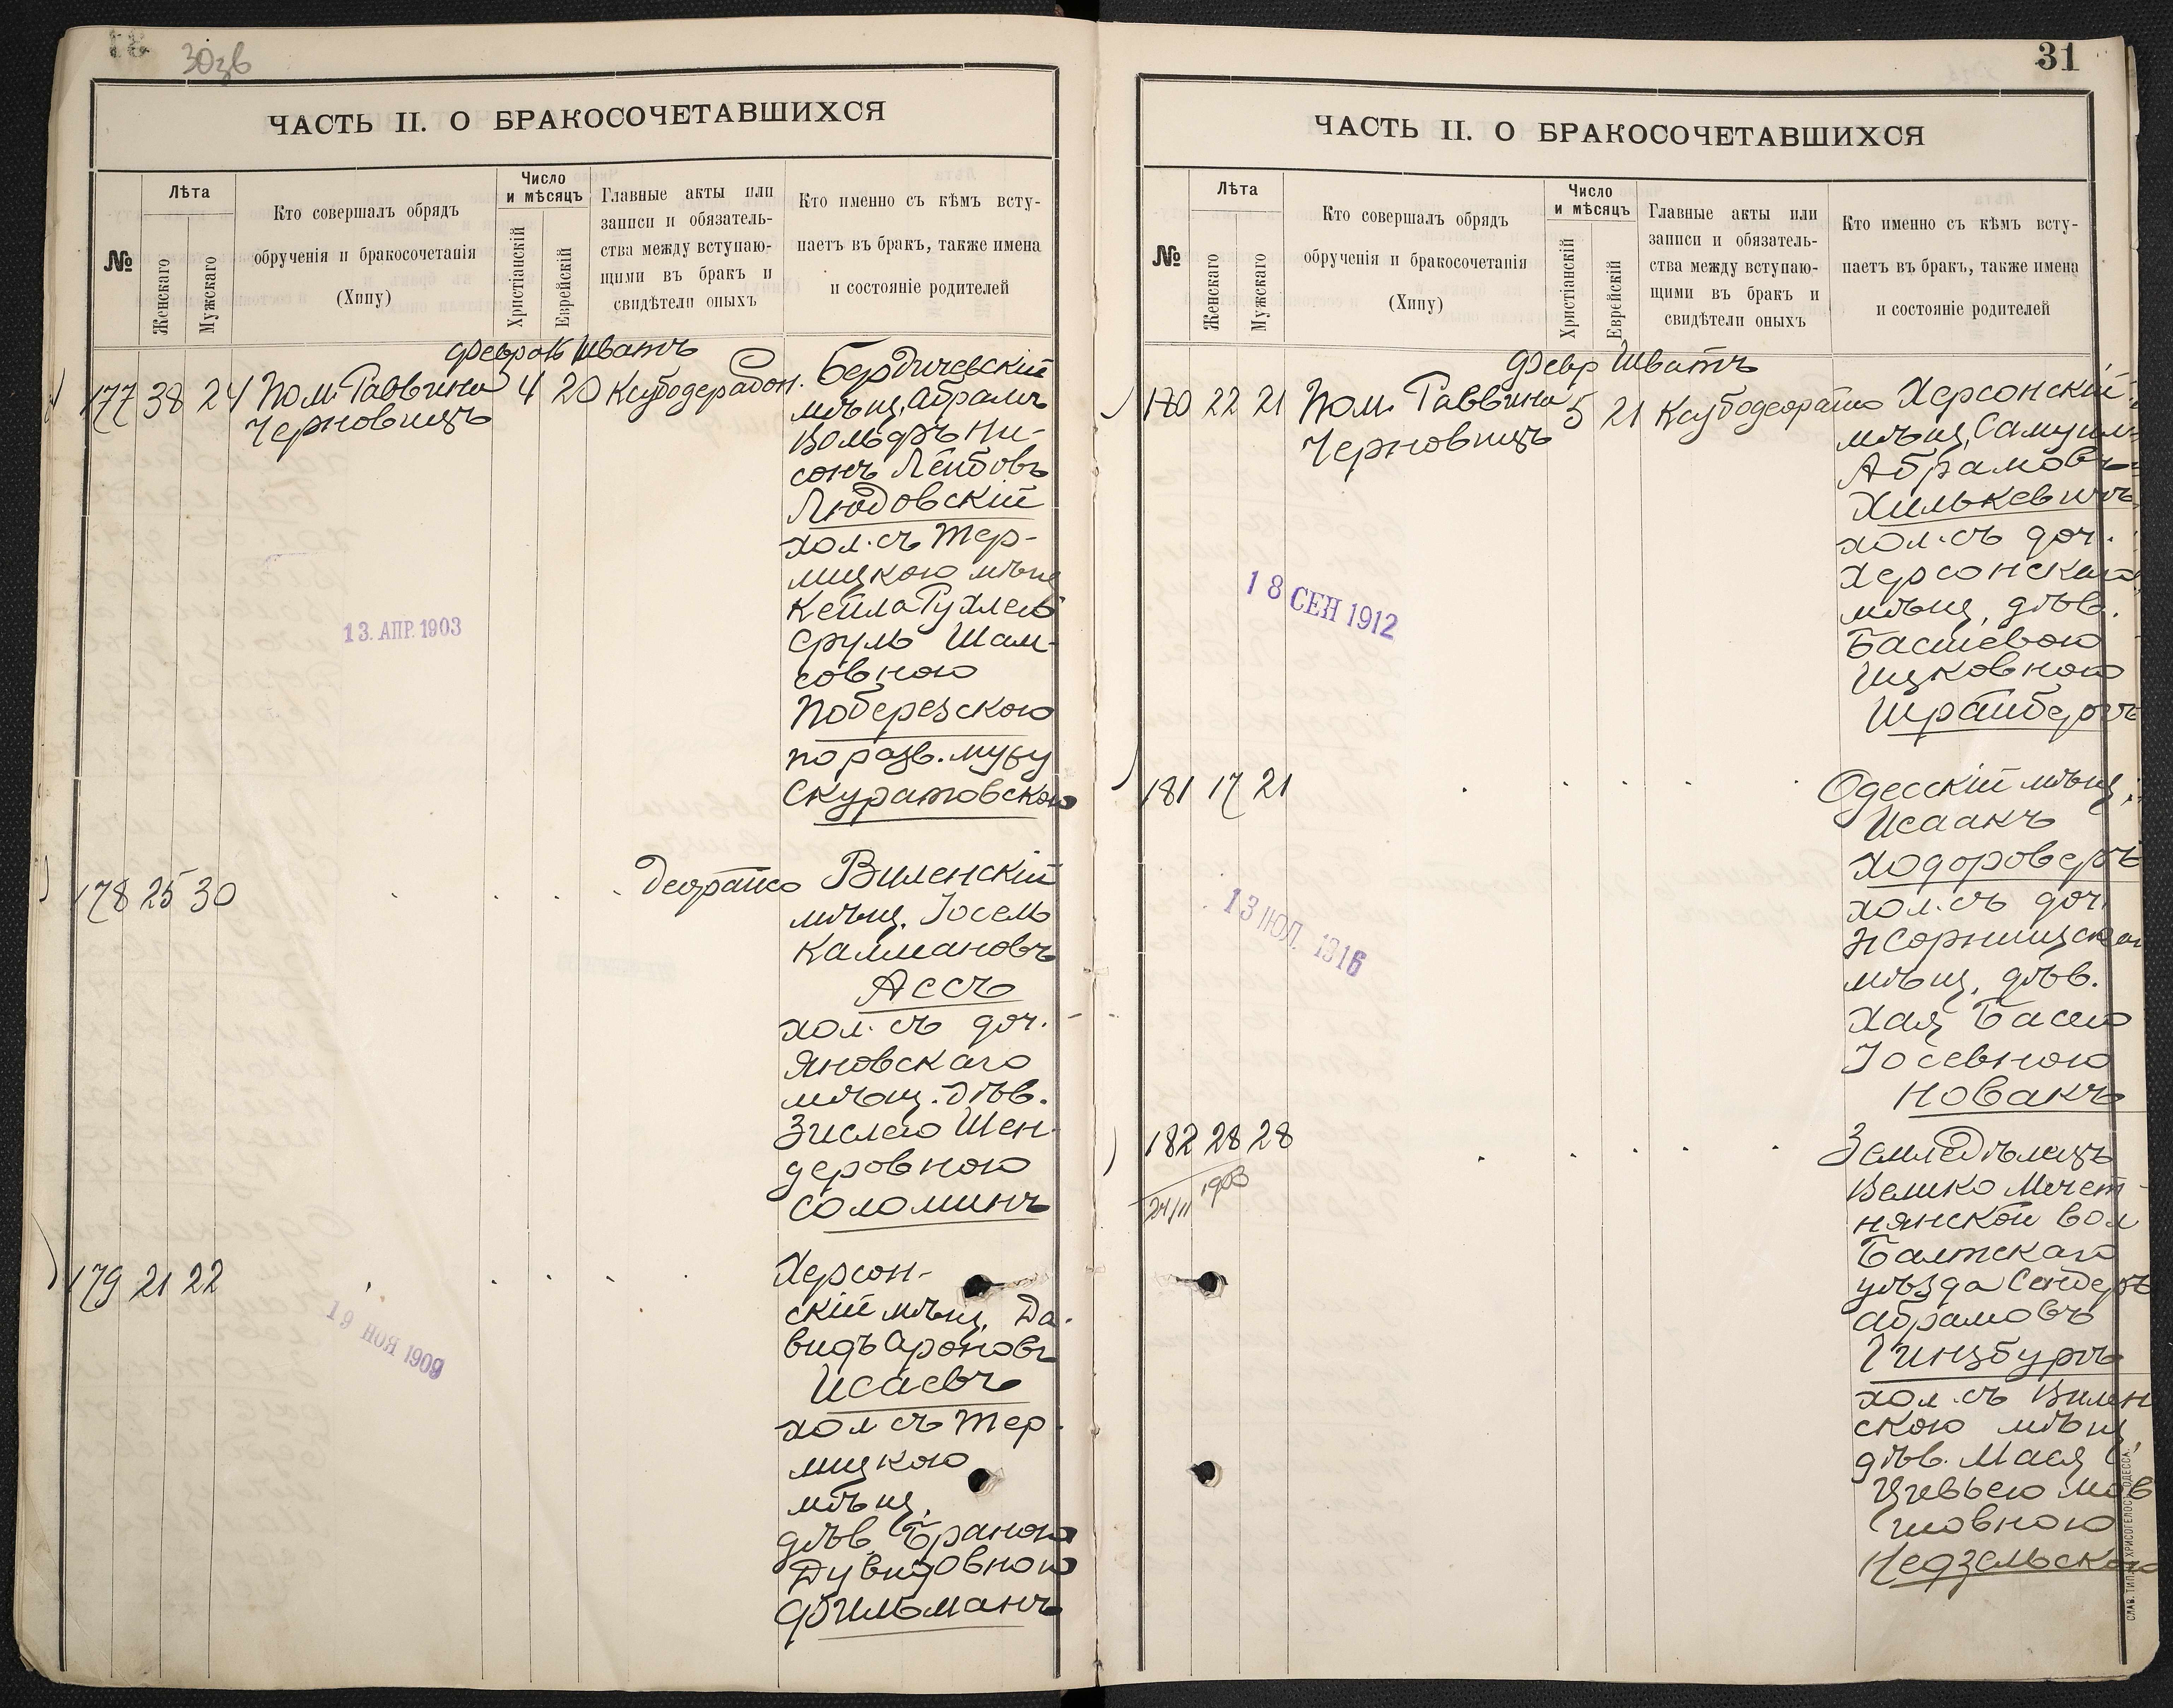 30зв
ЧАСТЬ II. О БРАКОСОЧЕТАВШИХСЯ
№
Лѣта
Женскаго
Мужскаго
Кто совершалъ обрядъ
обрученія и бракосочетанія
(Хипу)
Число
и мѣсяцъ
Христіанскій
Еврейскій
Главные акты или
записи и обязатель-
ства между вступаю-
щими въ бракъ и
свидѣтели оныхъ
Кто именно съ кѣмъ всту-
паетъ въ бракъ, также имена
и состояніе родителей
Шватъ
177 38 24 Пом. Раввина 4 20
Черновицъ
Бердичевскій
мѣщ. Абрамъ
Вольфъ Ни-
сонъ Лейбовъ
Людовскій
хол. съ Тер-
лицкою мѣщ
Кейла Рухлею
Сруль Шам-
совною
Поберезскою
по разв. мужу
Скуратовскою
13. АПР. 1903
178 25 30
Виленскій
мѣщ. Іосель
Калмановъ
Ассъ
хол. съ доч.
Яновскаго
мѣщ. дѣв.
Зислею Шен-
деровною
Соломинъ
179 21 22
Херсон-
скій мѣщ. Да-
видъ Ароновъ
Исаевъ
хол съ Тер-
лицкою
мѣщ.
дѣв. Браною
Дувидовною
Фильманъ
19 НОЯ 1909
31
ЧАСТЬ II. О БРАКОСОЧЕТАВШИХСЯ
№
Лѣта
Женскаго
Мужскаго
Кто совершалъ обрядъ
обрученія и бракосочетанія
(Хипу)
Число
и мѣсяцъ
Христіанскій
Еврейскій
Главные акты или
записи и обязатель-
ства между вступаю-
щими въ бракъ и
свидѣтели оныхъ
Кто именно съ кѣмъ всту-
паетъ въ бракъ, также имена
и состояніе родителей
Февр Шватъ
180 22 21 Пом. Раввина 5 21
Черновицъ
Херсонскій
мѣщ. Самуил
Абрамовъ
Хилькевичъ
хол. съ доч.
Херсонскаго
мѣщ. дѣв.
Басшевою
Ицковною
Шрайберъ
18 СЕН 1912
181 17 21
Одесскій мѣщ.
Исаакъ
Ходороверъ
хол. съ доч.
мѣщ. дѣв.
Хая Басею
Іосевною
Новакъ
13 ИЮЛ. 1916
182 28 28
24/II 1903
Земледѣлецъ
Велико Мечет-
нянской вол
Балтскаго
уѣзда Сендеръ
Абрамовъ
Гинзбургъ
хол. съ Вилен
скою мѣщ
дѣв. Мася
Цивьею Мов
шовною
Недзельскою
СЛАВ. ТИП. Н. ХРИСОГЕЛОСЪ, ОДЕССА.